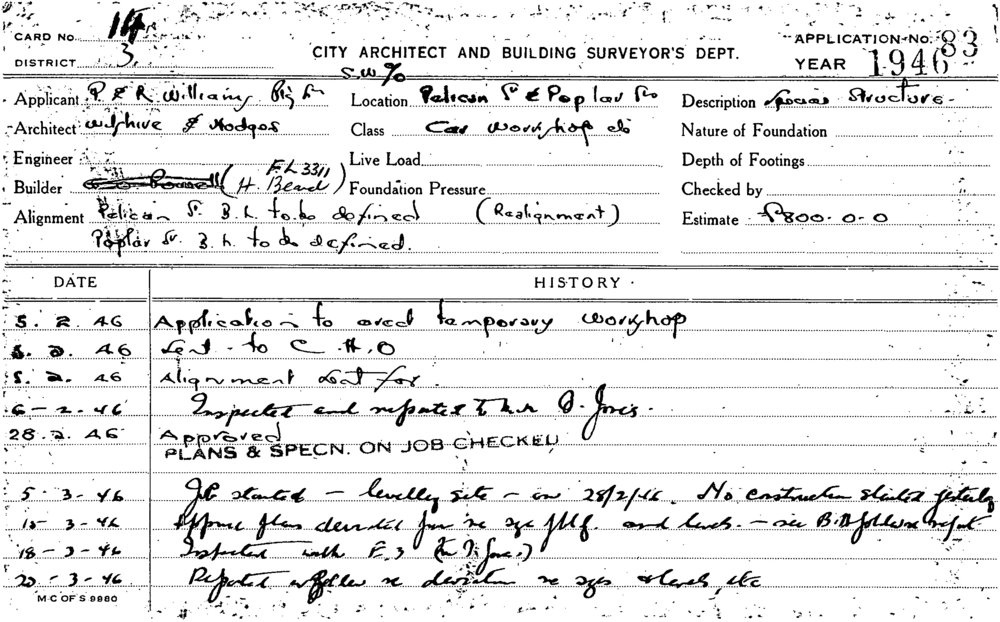 CARD No. 14
DISTRICT 3
CITY ARCHITECT AND BUILDING SURVEYOR'S DEPT.
APPLICATION No. 83
YEAR 1946
S.W.%
Applicant P & R Williams Pty Ltd Location Pelican St & Poplar St Description Special Structure
Architect Wilshire & Hodges Class Car Workshop Nature of Foundation
Engineer Live Load Depth of Footings
F.L 3311
Builder (H. Beard) Foundation Pressure Checked by
Alignment Pelican St. B.L. to be defined (Realignment) Estimate £800-0-0
Poplar St. B.L. to be defined.
DATE HISTORY
5. 2. 46 Application to erect temporary workshop
5. 2. 46 Sent to C.H.O
5. 2. 46 Alignment sent for.
6-2-46 Inspected and reported to Mr Jones.
28.2.46 Approved
PLANS & SPECN. ON JOB CHECKED
5-3-46 Job started - levelling site - on 28/2/46. No construction started yesterday
15-3-46 plan deviated from re size and levels. - see B.
18-3-46 Inspected with F.3 (Mr Jones.)
20-3-46 Reported re deviation re sizes & levels, etc
M C OF S 9980